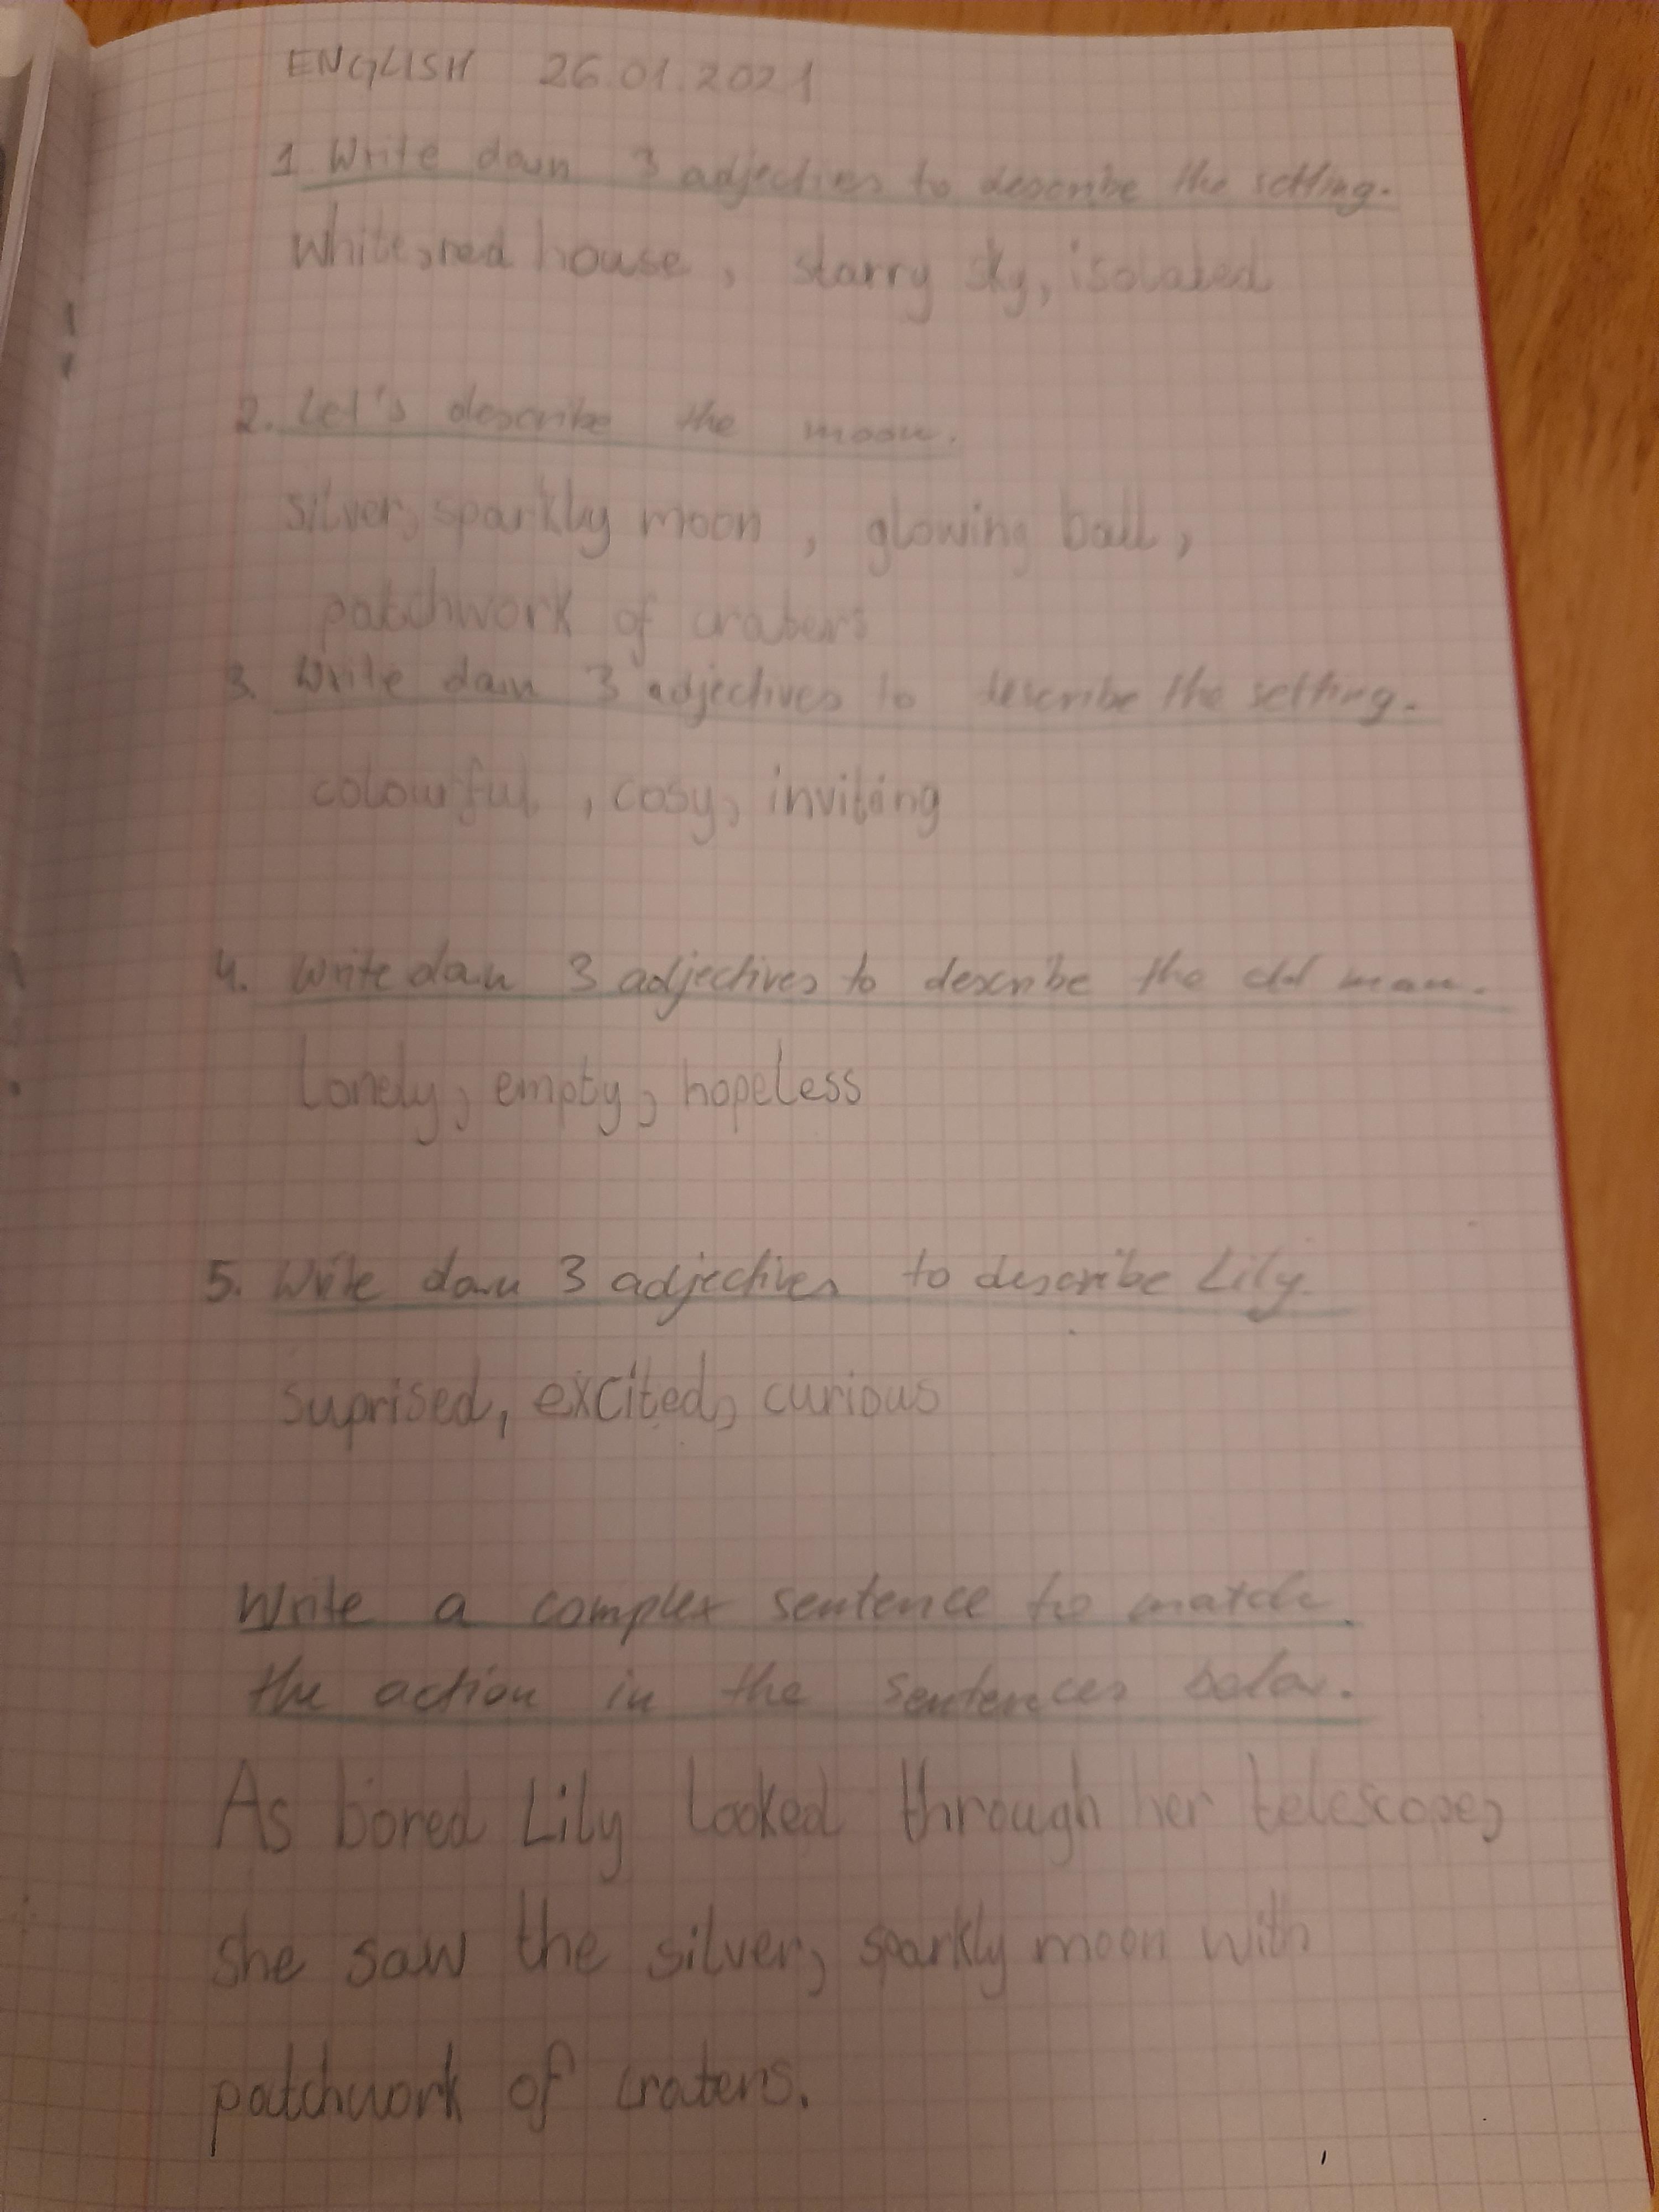 ENGLISH 26.01.2021
1 Write down 3 adjectives to describe the setting.
White, red house, starry sky, isolated
2. Let's describe the moon.
silver, sparkly moon, glowing ball,
patchwork of craters
3. Write down 3 adjectives to describe the setting.
colourful, cosy, inviting
4. Write down 3 adjectives to describe the old man.
Lonely, empty, hopeless
5. Write down 3 adjectives to describe Lily.
suprised, excited, curious
Write a complex sentence to match
the action in the sentences below.
As bored Lily looked through her telescope,
she saw the silver, sparkly moon with
patchwork of craters.